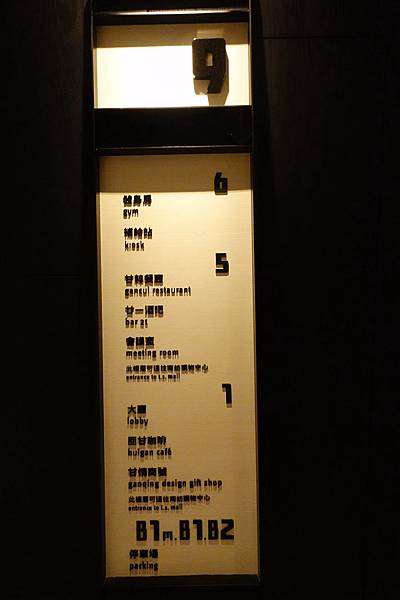 9
6
健身房
gym
補給站
kiosk
5
甘粹餐廳
gancui restaurant
廿一酒吧
bar 21
會議室
meeting room
此樓層可通往南紡購物中心
entrance to t.s. mall
1
大廳
lobby
回甘咖啡
huigan café
甘情商號
ganqing design gift shop
此樓層可通往南紡購物中心
entrance to t.s. mall
B1m.B1.B2
停車場
parking